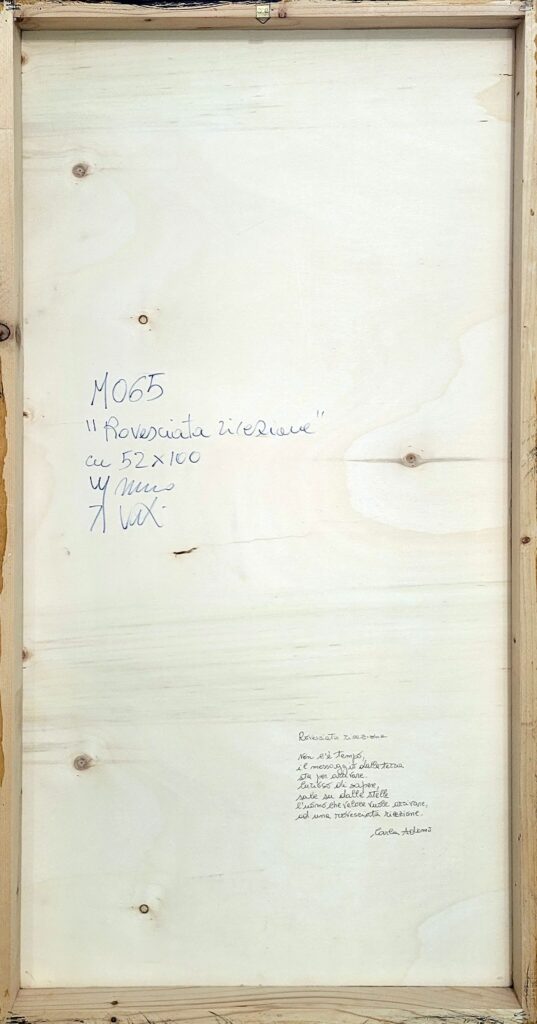 M065
"Rovesciata ricezione"
cm 52x100
Rovesciata ricezione
Non c'è tempo,
il messaggio dalla terra
sta per arrivare.
Curioso di sapere,
sale su dalle stelle
l'uomo che veloce vuole arrivare,
ad una rovesciata ricezione.
Carla